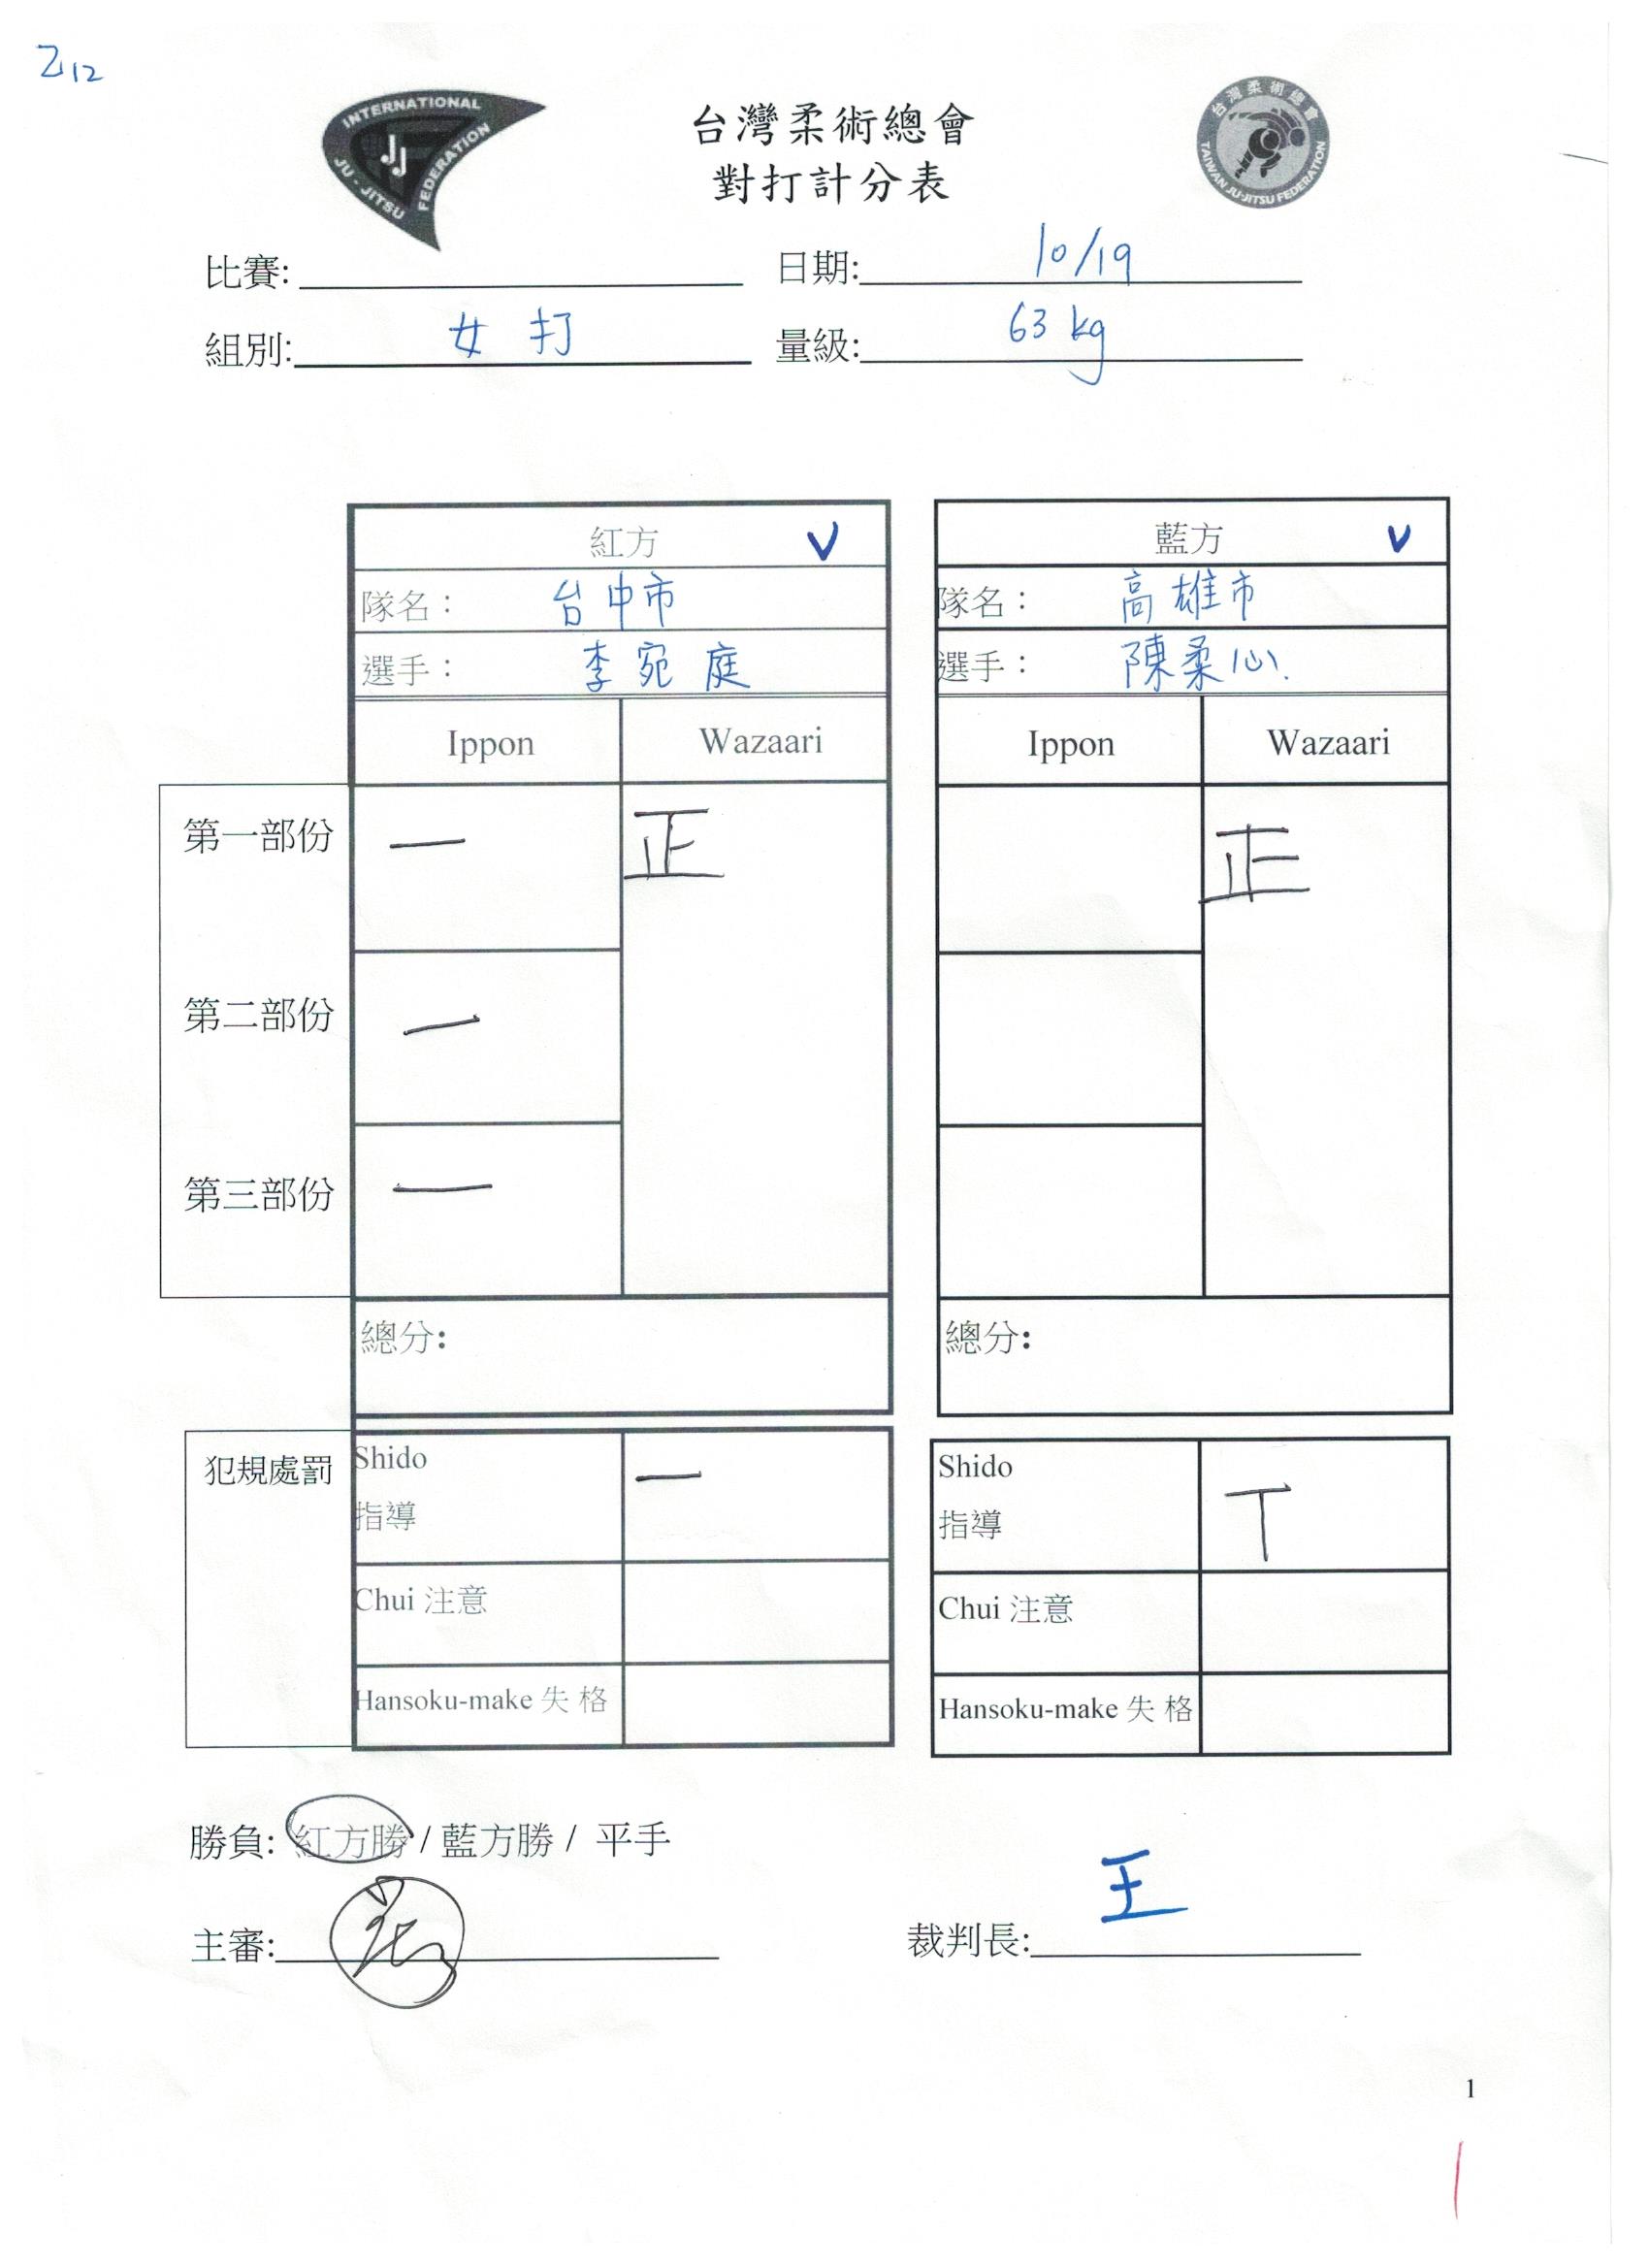 Z12
INTERNATIONAL JU-JITSU FEDERATION
JJ
台灣柔術總會
TAIWAN JU-JITSU FEDERATION
台灣柔術總會
對打計分表
比賽: 日期: 10/19
組別: 女打 量級: 63 kg
紅方 V 藍方 V
隊名： 台中市 隊名： 高雄市
選手： 李宛庭 選手： 陳柔心
Ippon Wazaari Ippon Wazaari
第一部份 一 正 正
第二部份 一
第三部份 一
總分: 總分:
犯規處罰 Shido 一 Shido 丅
指導 指導
Chui 注意 Chui 注意
Hansoku-make 失格 Hansoku-make 失格
勝負: 紅方勝 / 藍方勝 / 平手
主審: 裁判長: 王
1